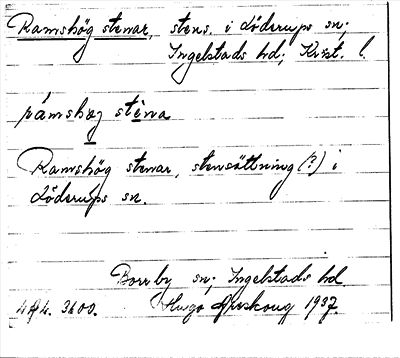 Ramshög stenar, stens. i Löderups sn;
Ingelstads hd; Krist. l.
rámshøg stèna
Ramshög stenar, stensättning (?) i
Löderups sn.
Borrby sn; Ingelstads hd
3600. Hugo Areskoug 1937.